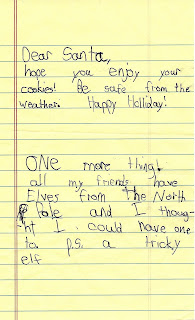 Dear Santa,
hope you enjoy your
cookies! Be safe from the
weather. Happy Holliday!
ONE more thing!
all my friends have
Elves from the North
Pole and I thoug-
ht I could have one
to. p.s. a tricky
elf